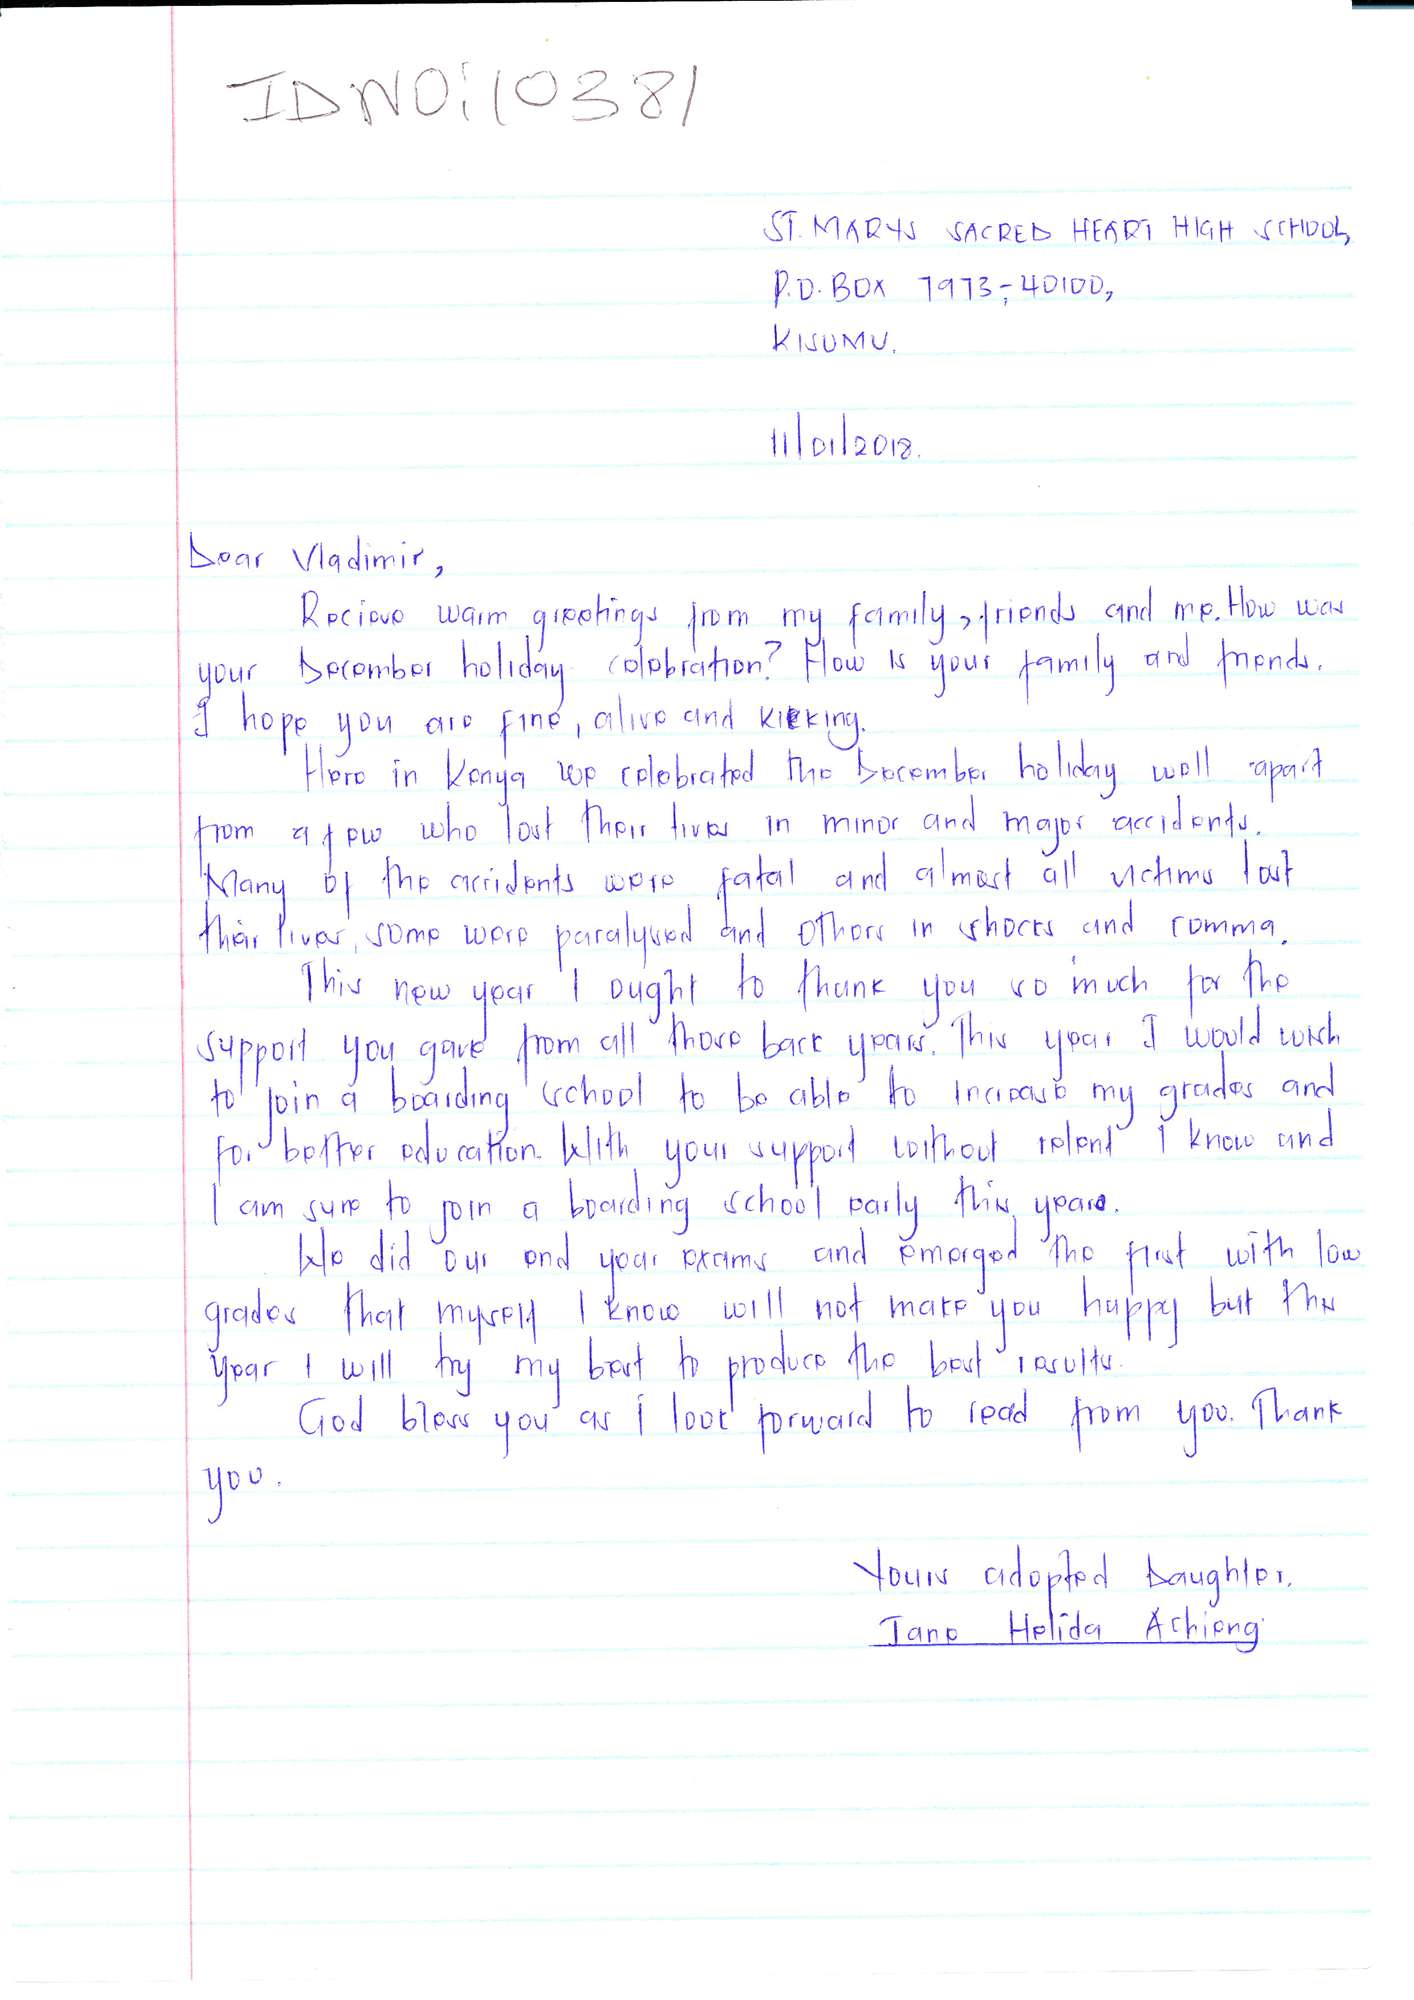 IDNO:10381
ST. MARYS SACRED HEART HIGH SCHOOL,
P.O. BOX 7973-40100,
KISUMU.
11/01/2018.
Dear Vladimir,
Recieve warm greetings from my family, friends and me. How was
your December holiday celebration? How is your family and friends.
I hope you are fine, alive and kicking.
Here in Kenya we celebrated the December holiday well apart
from a few who lost their lives in minor and major accidents.
Many of the accidents were fatal and almost all victims lost
their lives, some were paralysed and others in shocks and comma.
This new year I ought to thank you so much for the
support you gave from all those back years. This year I would wish
to join a boarding school to be able to increase my grades and
for better education. With your support without relent I know and
I am sure to join a boarding school early this year.
We did our end year exams and emerged the first with low
grades that myself I know will not make you happy but this
year I will try my best to produce the best results.
God bless you as i look forward to read from you. Thank
you.
Yours adopted Daughter.
Jane Helida Achieng